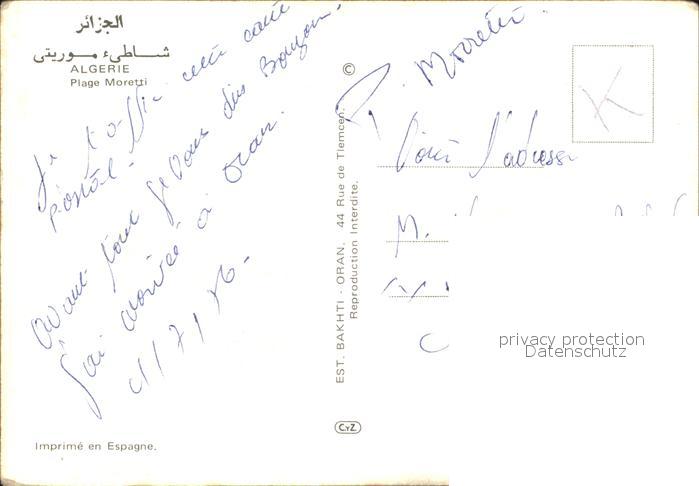 الجزائر
شاطىء موريتى
ALGERIE
Plage Moretti
Je t'offre cette carte
postal.
Avant tous je vous dis Bonjour.
J'ai arrivée à Oran.
1/7/76-
Imprimé en Espagne.
EST. BAKHTI - ORAN. 44 Rue de Tlemcen.
Reproduction Interdite.
©
CyZ
P. Moretti.
K
Voici l'adresse
M.
privacy protection
Datenschutz